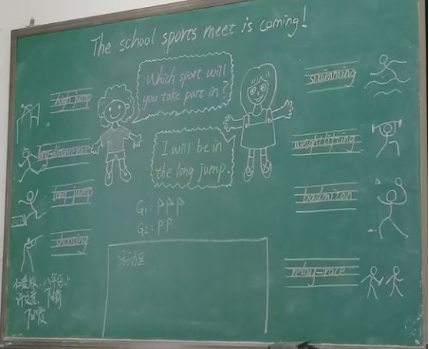 The school sports meet is coming!
Which sport will
you take part in?
I will be in
the long jump.
high jump
long jump
shooting
swimming
weightlifting
badminton
relay-race
G1: PPP
G2: PP